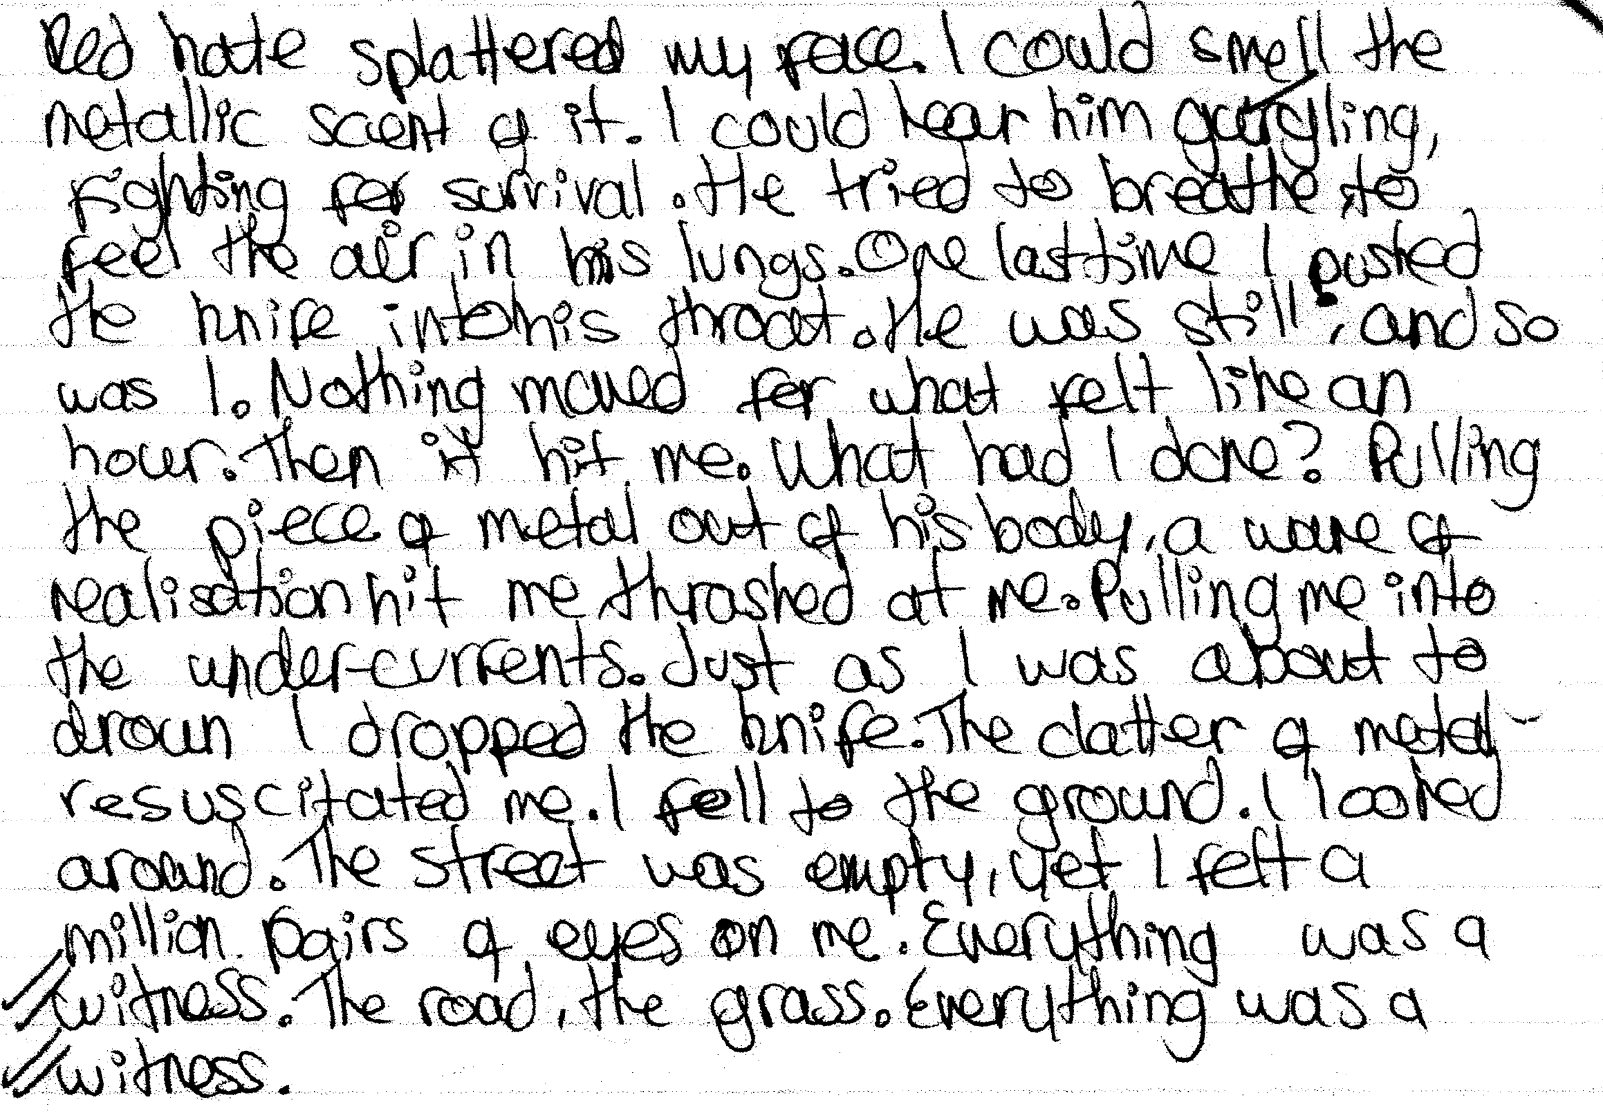 Red hate splattered my face. I could smell the
metallic scent of it. I could hear him gurgling,
fighting for survival. He tried to breathe, to
feel the air in his lungs. One last time I pushed
the knife into his throat. He was still, and so
was I. Nothing moved for what felt like an
hour. Then it hit me. What had I done? Pulling
the piece of metal out of his body, a wave of
realisation hit me, thrashed at me. Pulling me into
the under-currents. Just as I was about to
drown I dropped the knife. The clatter of metal
resuscitated me. I fell to the ground. I looked
around. The street was empty, yet I felt a
million pairs of eyes on me. Everything was a
witness. The road, the grass. Everything was a
witness.